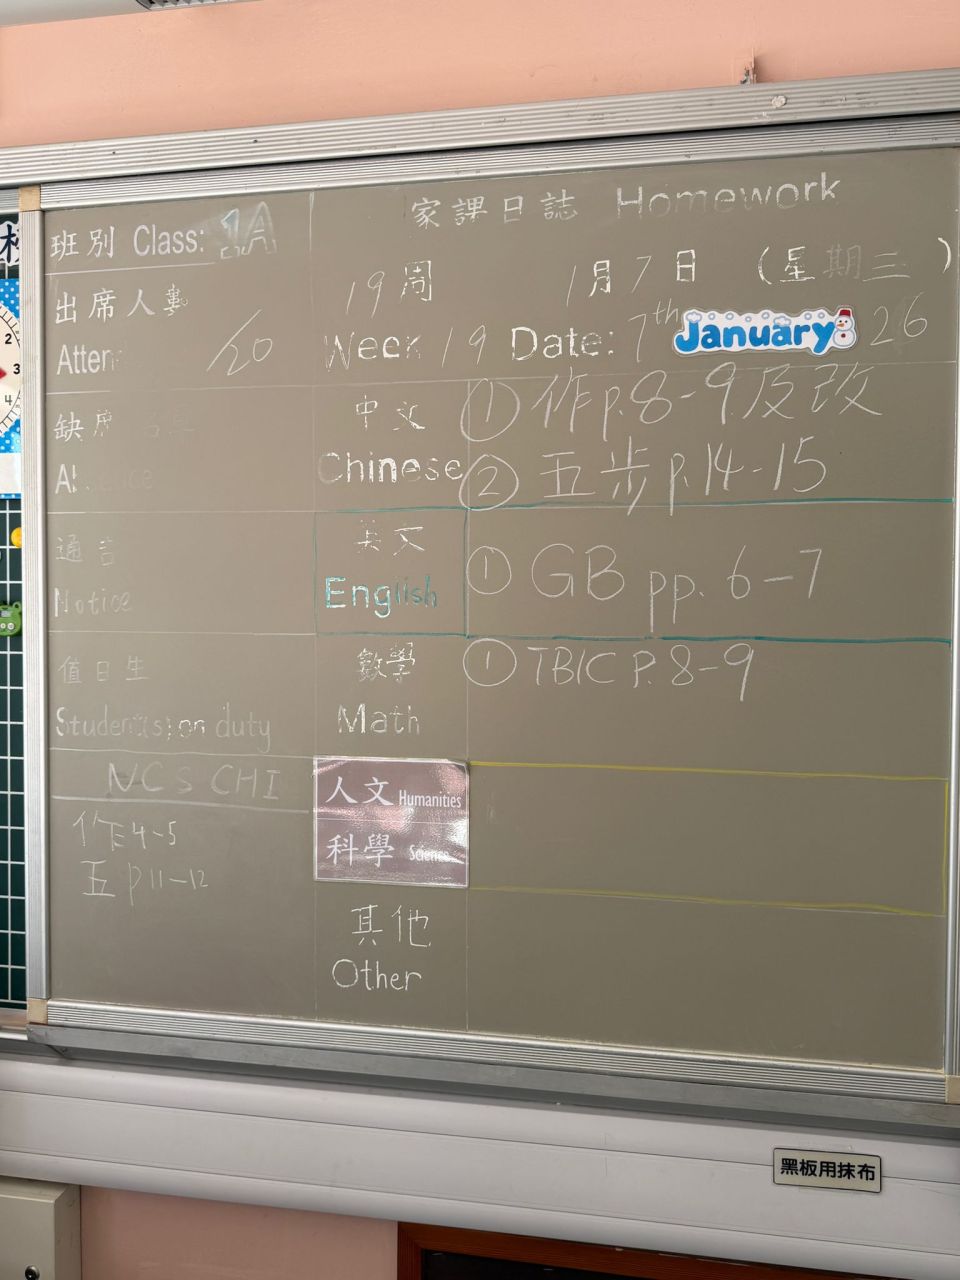 家課日誌 Homework
班別 Class: 1A
19周 1月7日 (星期三)
出席人數
Atten /20
Week 19 Date: 7th January 26
缺席
中文
Chinese
① 作p.8-9及改
② 五步p.14-15
通告
Notice
英文
English
① GB pp. 6-7
值日生
Student(s) on duty
數學
Math
① TB1C P.8-9
NCS CHI
作4-5
五p11-12
人文 Humanities
科學 Science
其他
Other
黑板用抹布